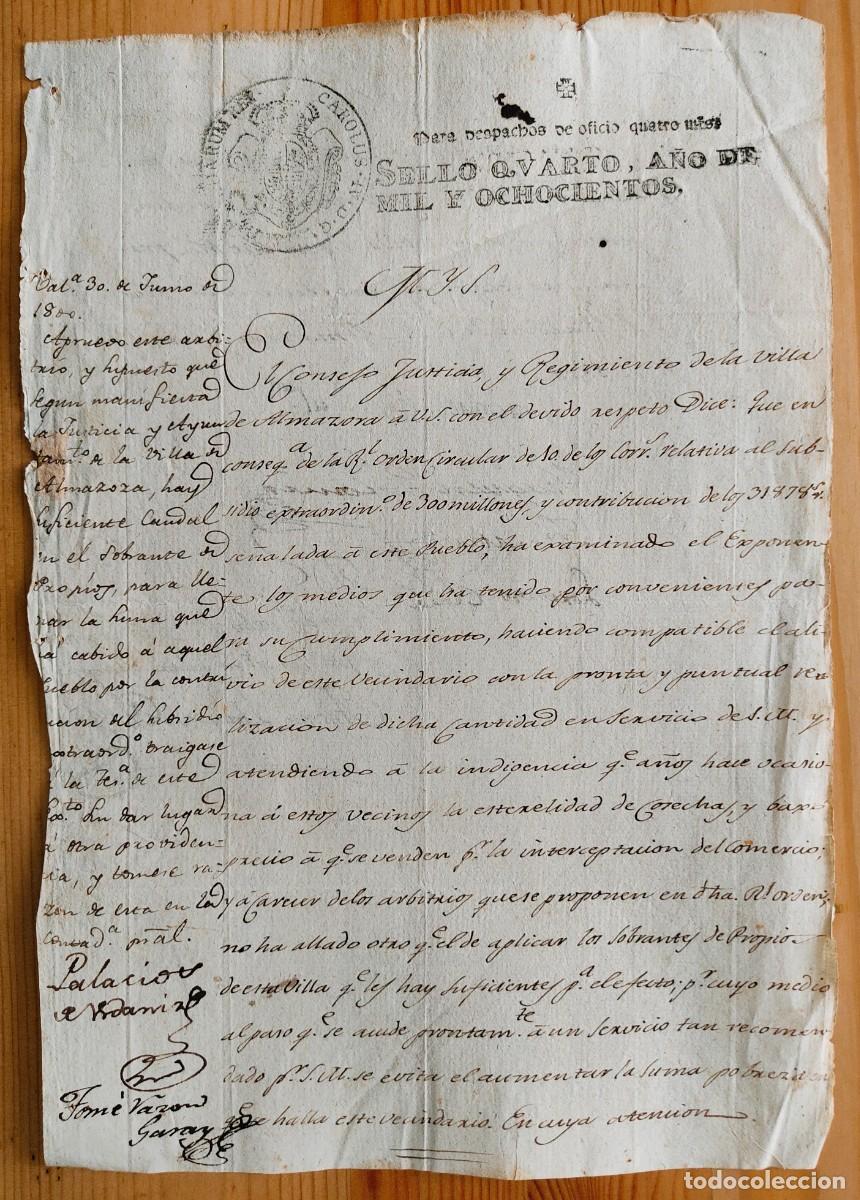 CAROLUS IV D.G. HISPANIARUM REX
Para despachos de oficio quatro mrs
SELLO QVARTO, AÑO DE
MIL Y OCHOCIENTOS.
Val.ª 30. de Junio de
1800.
Apruebo este arbi-
trio, y supuesto que
segun manifiesta
la Justicia y Ayun
tam.to de la Villa de
Almazora, hay
suficiente Caudal
en el sobrante de
Propios, para lle-
nar la suma que
ha cabido á aquel
Pueblo por la contri
cion del subsidio
extraord.º traigase
á la Tes.ª de este
Ex.to sin dar lugar
á otra providen-
cia, y tomese ra-
zon de esta en la
Contad.ª pral.
Palacios
de Urdaniz
Tomé Razon
Garay
M. Y. S.
El Consejo Justicia, y Regimiento de la Villa
de Almazora á V.S. con el devido respeto Dice: Que en
conseq.ª de la R.l orden Circular de 10. de los Corr.s relativa al Sub-
sidio extraordin.º de 300 millones, y contribucion de los 31878 r.s
señalada á este Pueblo, ha examinado el Exponen
te los medios que ha tenido por convenientes pa-
ra su Cumplimiento, haciendo compatible el ali-
vio de este Vecindario con la pronta y puntual rea
lizacion de dicha Cantidad en servicio de S. M. y
atendiendo á la indigencia q.e años hace ocasio-
na á estos vecinos la esterelidad de Cosechas, y baxo
precio á q.e se venden p.r la interceptacion del Comercio;
y á Carecer de los arbitrios que se proponen en dha. R.l orden,
no ha allado otro q.e el de aplicar los sobrantes de Propios
de esta Villa q.e les hay suficientes p.ª el efecto; p.r cuyo medio
al paso q.e se acude prontam.te á un servicio tan recomen
dado p.r S.M. se evita el aumentar la suma pobreza en
q.e se halla este vecindario. En cuya atencion
todocoleccion